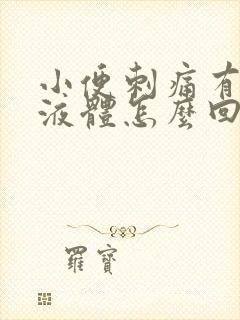 小便刺痛有
液體怎麼回
羅寶